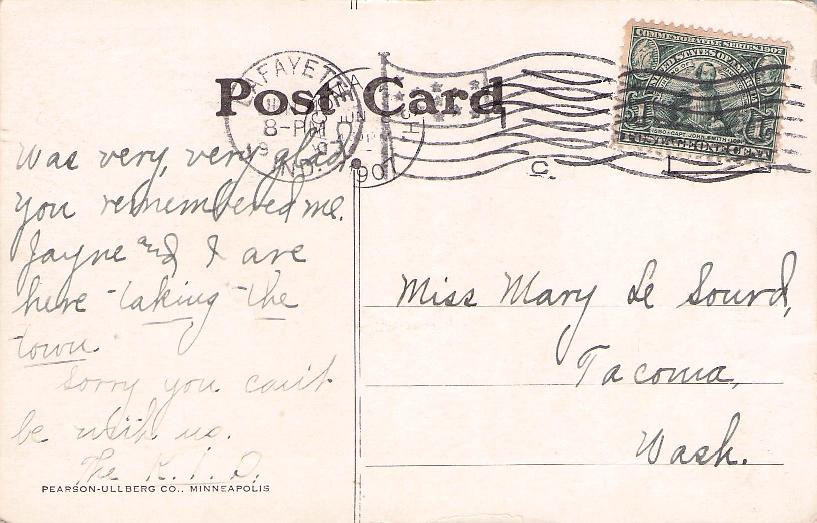 Post Card
LAFAYETTE
8-PM
IND.
1907
COMMEMORATIVE SERIES 1907
UNITED STATES OF AMERICA
1580 CAPT. JOHN SMITH 1631
POSTAGE ONE CENT
Was very, very glad
you remembered me.
Jayne and I are
here taking the
town.
Sorry you can't
be with us.
The K. I. D.
PEARSON-ULLBERG CO., MINNEAPOLIS
Miss Mary Le Sourd,
Tacoma,
Wash.